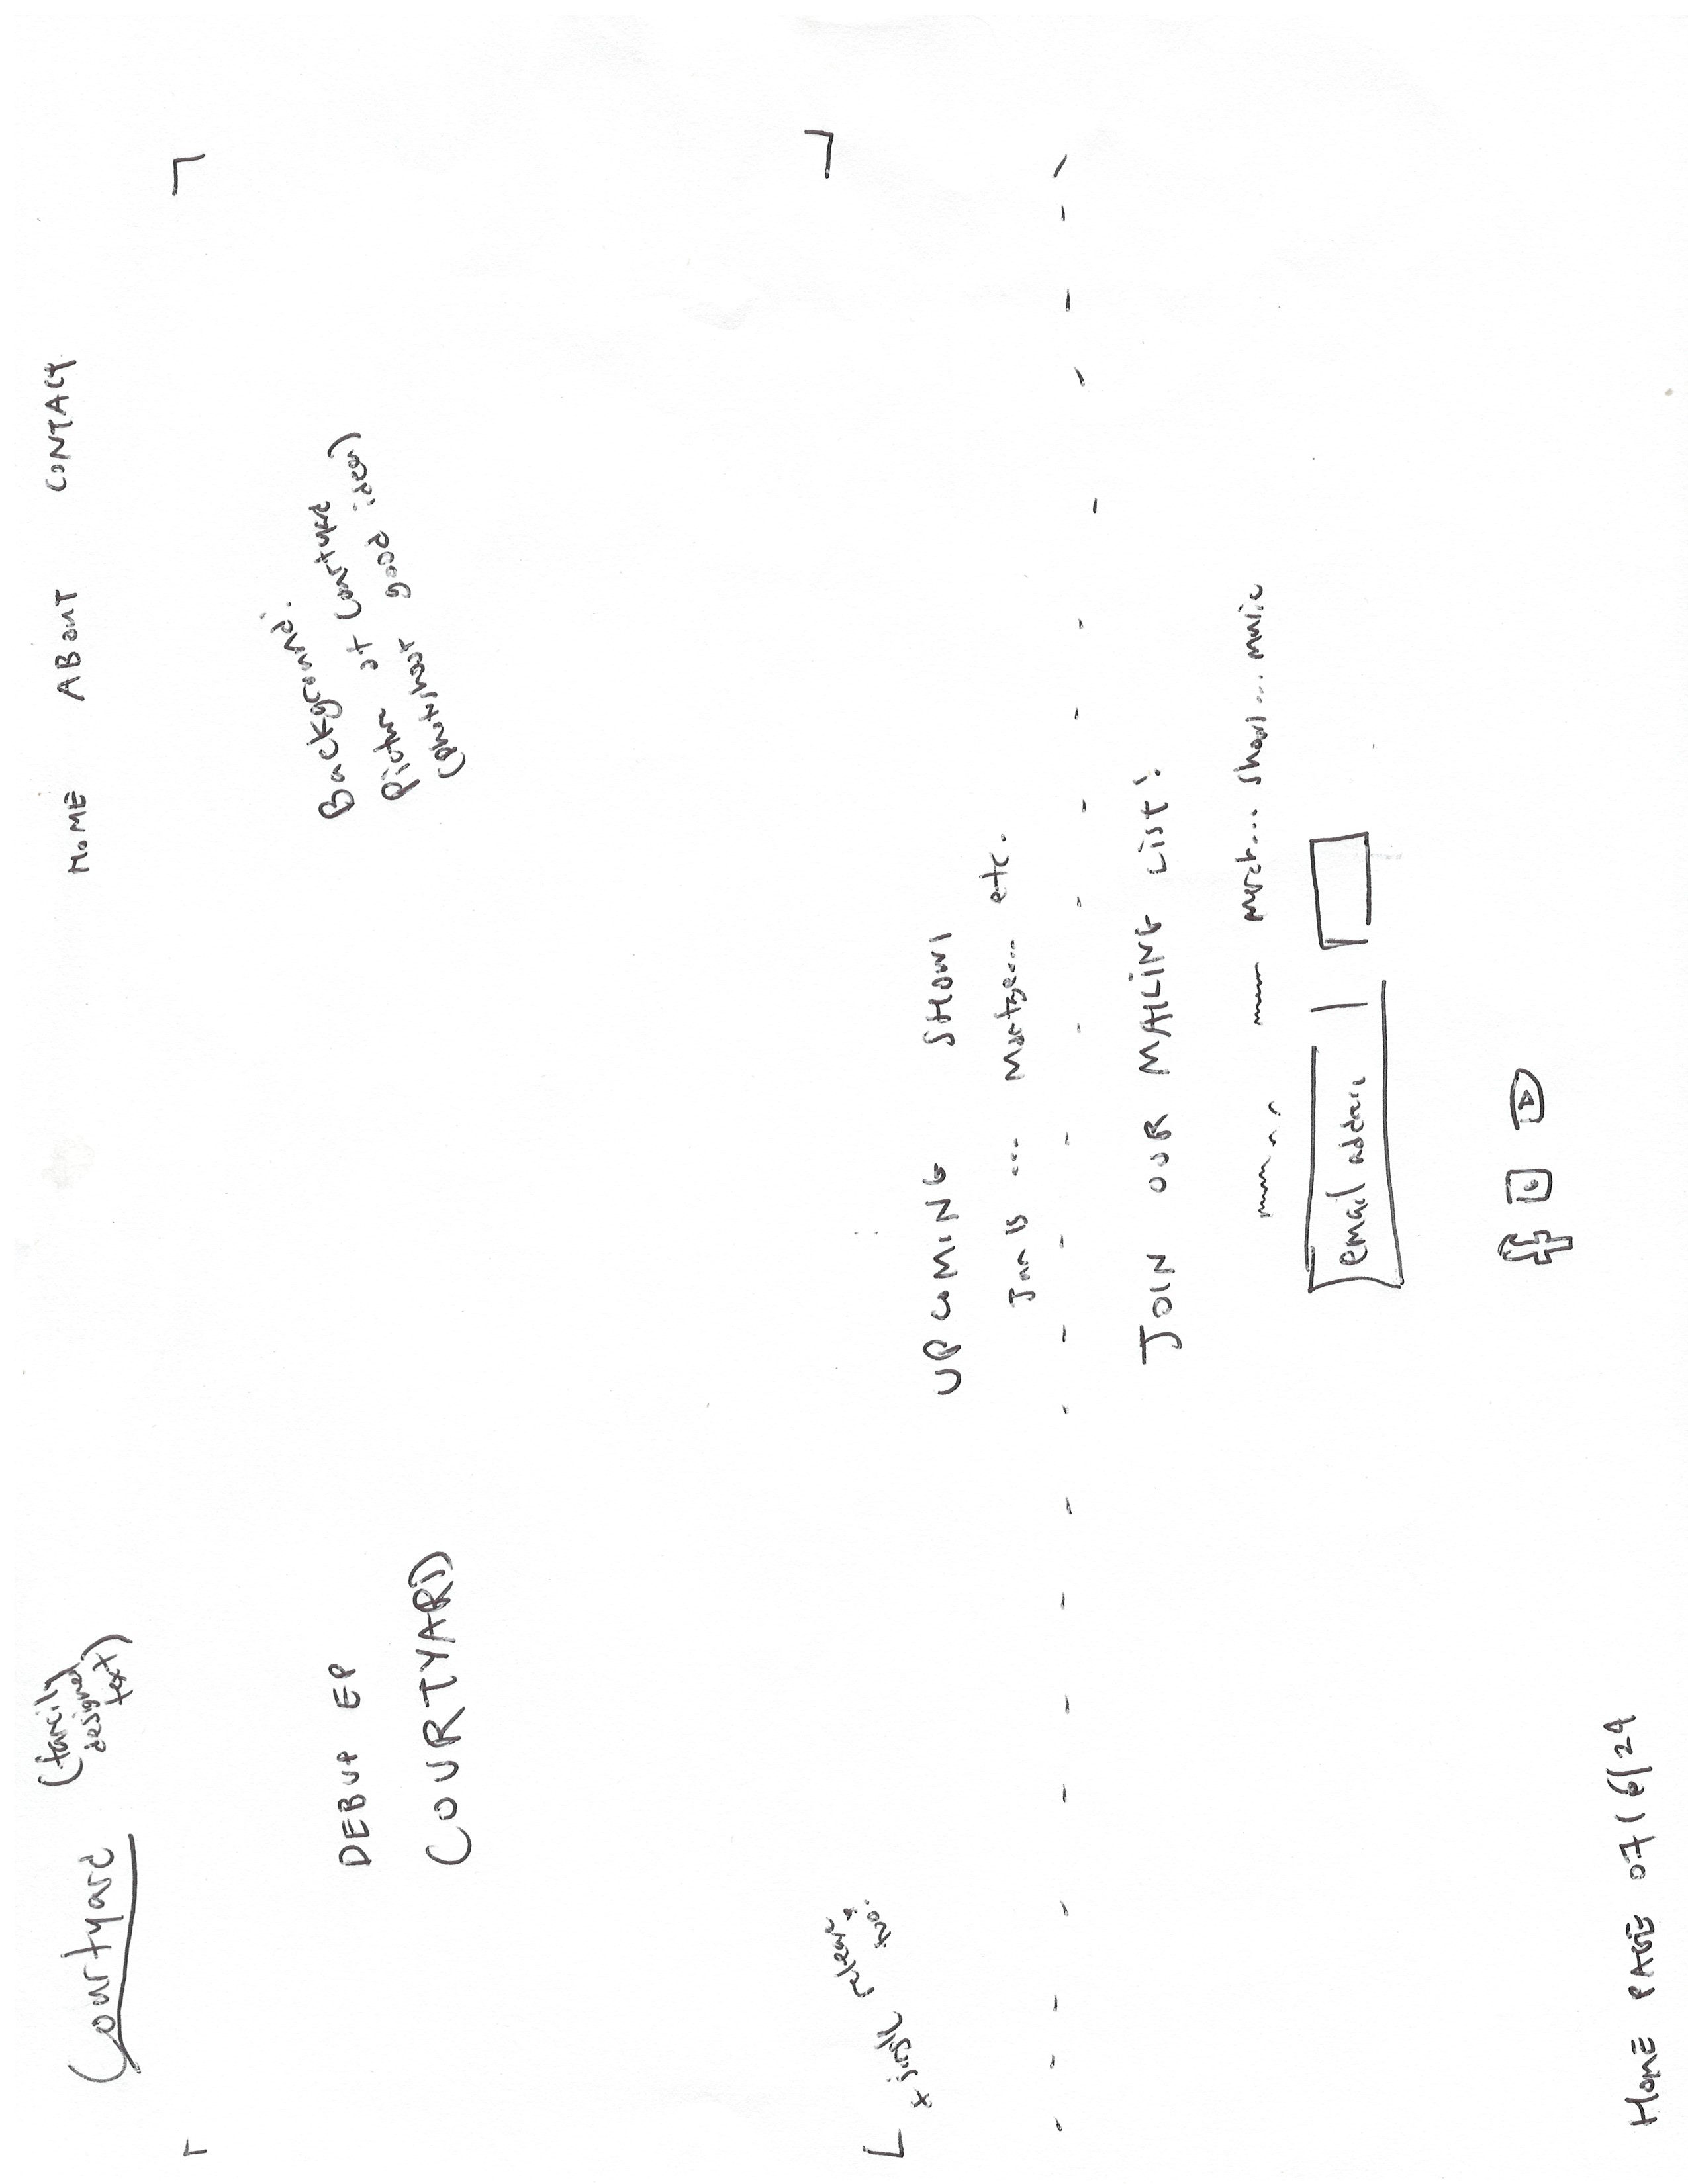 Courtyard
(fancily
designed
text)
HOME ABOUT CONTACT
DEBUT EP
COURTYARD
Background:
Picture of Courtyard
(photoshoot good idea)
+ single release
two?
UPCOMING SHOWS
Jan 15 ... etc.
JOIN OUR MAILING LIST!
merch... shows... music
email address
HOME PAGE 07/6/24